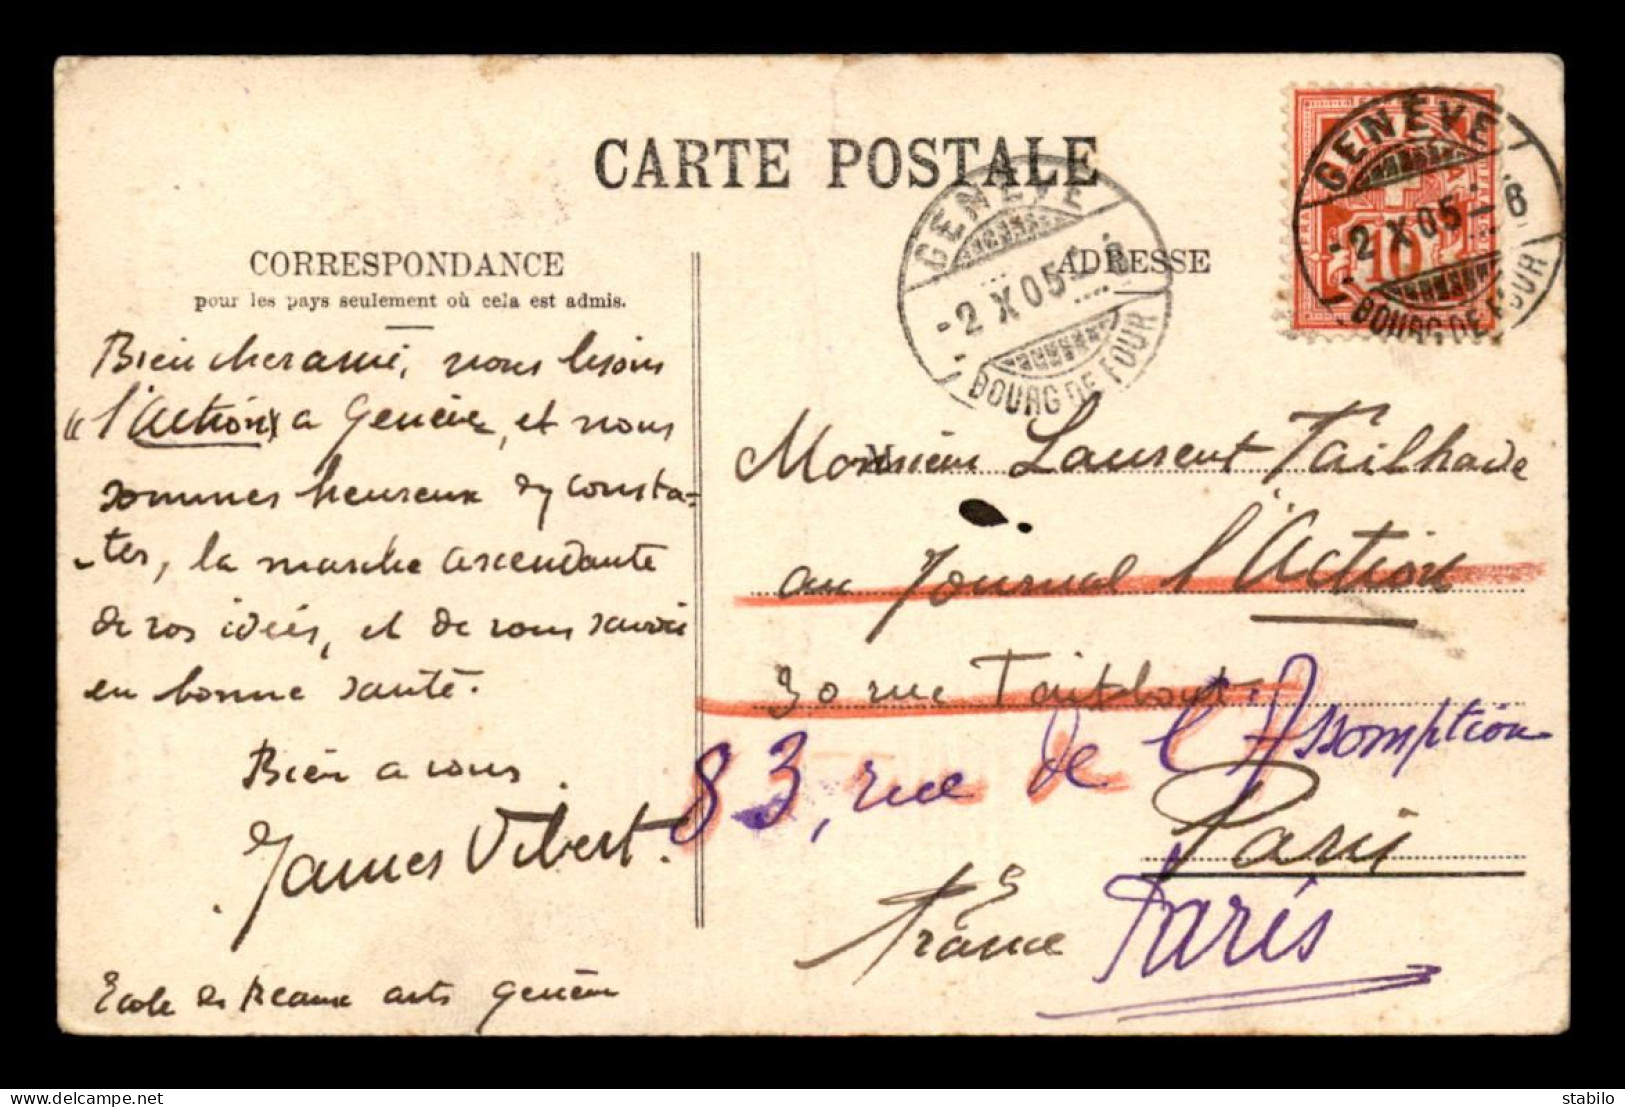 CARTE POSTALE
CORRESPONDANCE
pour les pays seulement où cela est admis.
ADRESSE
GENÈVE
-2 X 05-6
BOURG DE FOUR
GENÈVE
-2 X 05-8
BOURG DE FOUR
10
Bien cher ami, nous lisons
"l'Action" a Genève, et nous
sommes heureux d'y consta-
-ter, la marche ascendante
de vos idées, et de vous savoir
en bonne santé.
Bien a vous
James Vibert.
Ecole des Beaux arts Genève
Monsieur Laurent Tailhade
au Journal l'Action
30 rue Taitbout
83, rue de l'Assomption
Paris
France
Paris
delcampe.net
stabilo